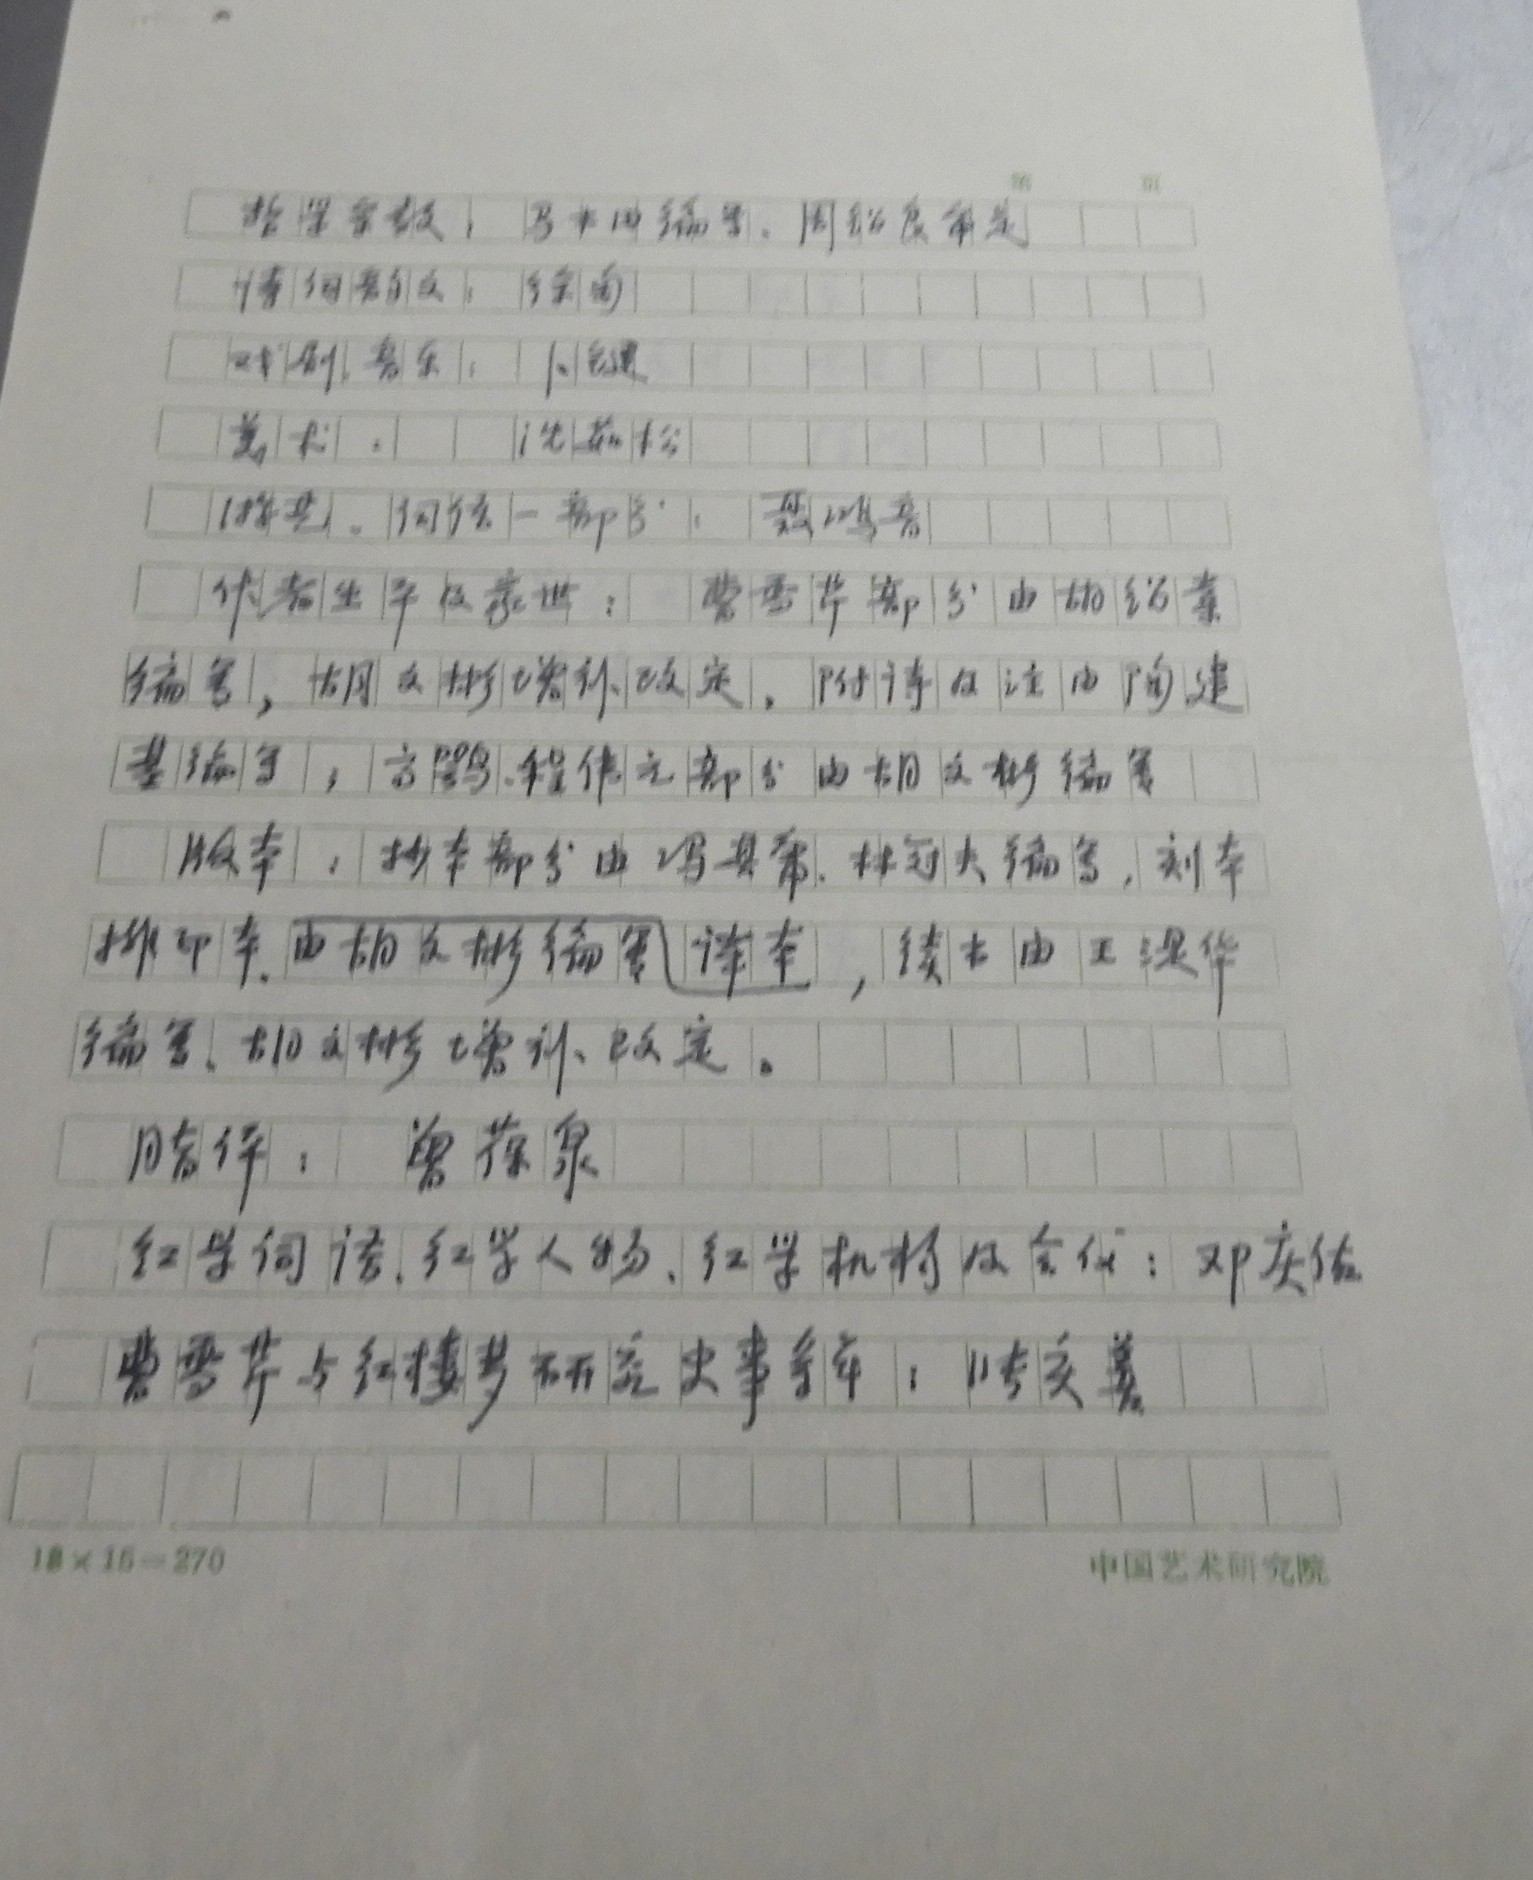 第 页
哲学宗教: 编写、周绍良审定
诗词韵文: 徐
戏剧、音乐: 卜键
美术: 沈茹松
撰书、词语一部分: 聂鸿音
作者生平及家世: 曹雪芹部分由胡绍棠
编写,胡文彬增补、改定,附诗及注由陶建
基编写,高鹗、程伟元部分由胡文彬编写
版本: 抄本部分由冯其庸、林冠夫编写,刻本
排印本、由胡文彬编写译本,续书由王湜华
编写、胡文彬增补、改定。
脂评: 曾葆泉
红学词语、红学人物、红学机构及会议: 邓庆佑
曹雪芹与红楼梦研究史事系年: 庆善
18×15=270 中国艺术研究院